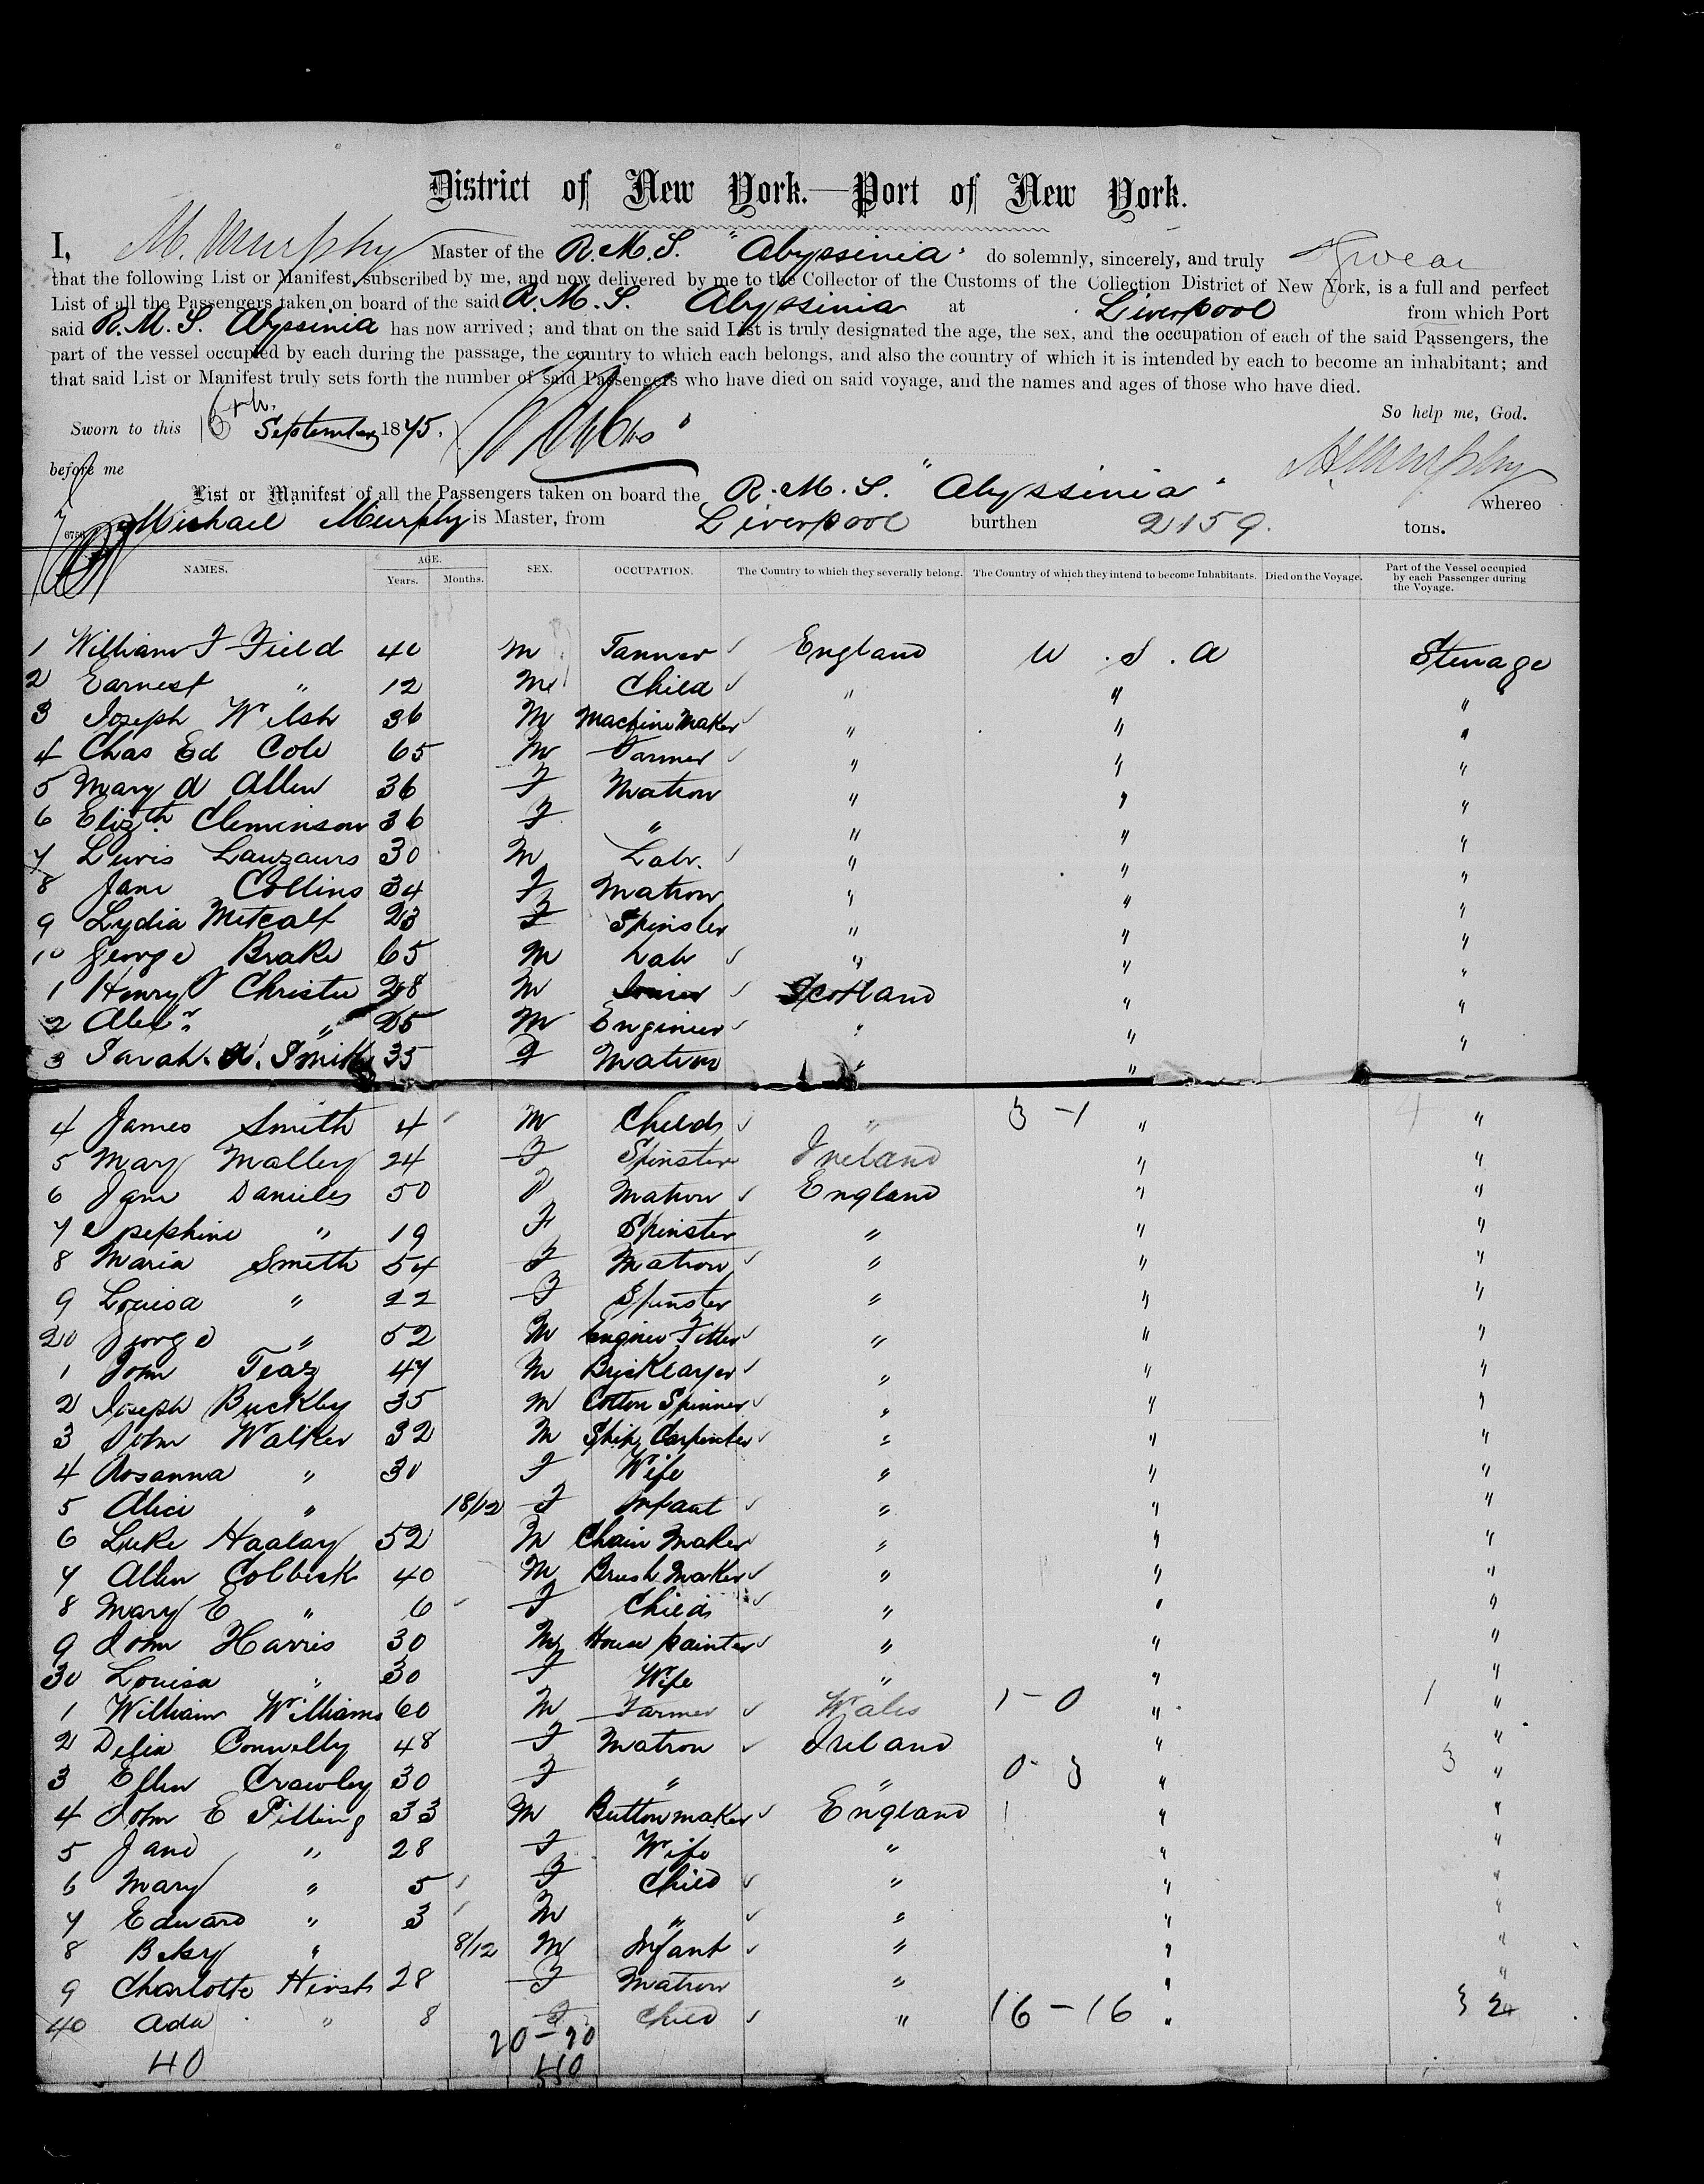 District of New York.—Port of New York.
I, M. Murphy Master of the R.M.S. "Abyssinia" do solemnly, sincerely, and truly swear
that the following List or Manifest, subscribed by me, and now delivered by me to the Collector of the Customs of the Collection District of New York, is a full and perfect
List of all the Passengers taken on board of the said R.M.S. Abyssinia at Liverpool from which Port
said R.M.S. Abyssinia has now arrived; and that on the said List is truly designated the age, the sex, and the occupation of each of the said Passengers, the
part of the vessel occupied by each during the passage, the country to which each belongs, and also the country of which it is intended by each to become an inhabitant; and
that said List or Manifest truly sets forth the number of said Passengers who have died on said voyage, and the names and ages of those who have died.
So help me, God.
Sworn to this 16th September 1875.
before me M Murphy
List or Manifest of all the Passengers taken on board the R.M.S. "Abyssinia" whereo
Michael Murphy is Master, from Liverpool burthen 2159. tons.
NAMES. AGE. Years. Months. SEX. OCCUPATION. The Country to which they severally belong. The Country of which they intend to become Inhabitants. Died on the Voyage. Part of the Vessel occupied by each Passenger during the Voyage.
1 William F Field 40 M Tanner England U.S.A Steerage
2 Earnest " 12 M Child " " "
3 Joseph 36 M Machine Maker " " "
4 Chas Ed Cole 65 M Farmer " " "
5 Mary A Allen 36 F Matron " " "
6 Elizth Cleminson 36 F " " " "
7 Lewis 30 M Labr. " " "
8 Jane Collins 34 F Matron " " "
9 Lydia Metcalf 23 F Spinster " " "
10 George Brake 65 M Labr " " "
1 Henry Christie 28 M Scotland " "
2 Alexr. " 25 M Engineer " " "
3 Sarah. A. Smith 35 F Matron " "
4 James Smith 4 M Child " 3-1 " 4 "
5 Mary Malley 24 F Spinster Ireland " "
6 Jane Daniels 50 F Matron England " "
7 Josephine " 19 F Spinster " " "
8 Maria Smith 54 F Matron " " "
9 Louisa " 22 F Spinster " " "
20 George " 52 M Engine Fitter " " "
1 John Teaz 47 M Bricklayer " " "
2 Joseph Buckley 35 M Cotton Spinner " " "
3 John Walker 32 M Ship Carpenter " " "
4 Rosanna " 30 F Wife " " "
5 Alice " 18/12 F Infant " " "
6 Luke Haalay 52 M Chain Maker " " "
7 Allen Colbeck 40 M Brush Maker " " "
8 Mary E " 6 F Child " " "
9 John Harris 30 M House painter " " "
30 Louisa " 30 F Wife " " "
1 William Williams 60 M Farmer Wales 1-0 " 1 "
2 Delia Connelly 48 F Matron Ireland " "
3 Ellen Crawley 30 F " " 0-3 " 3 "
4 John E Pilling 33 M Button maker England " "
5 Jane " 28 F Wife " " "
6 Mary " 5 F Child " " "
7 Edward " 3 M " " " "
8 Betsy " 8/12 M Infant " " "
9 Charlotte Hirst 28 F Matron " " "
40 Ada " 8 F Child " 16-16 "
40 20-20
40